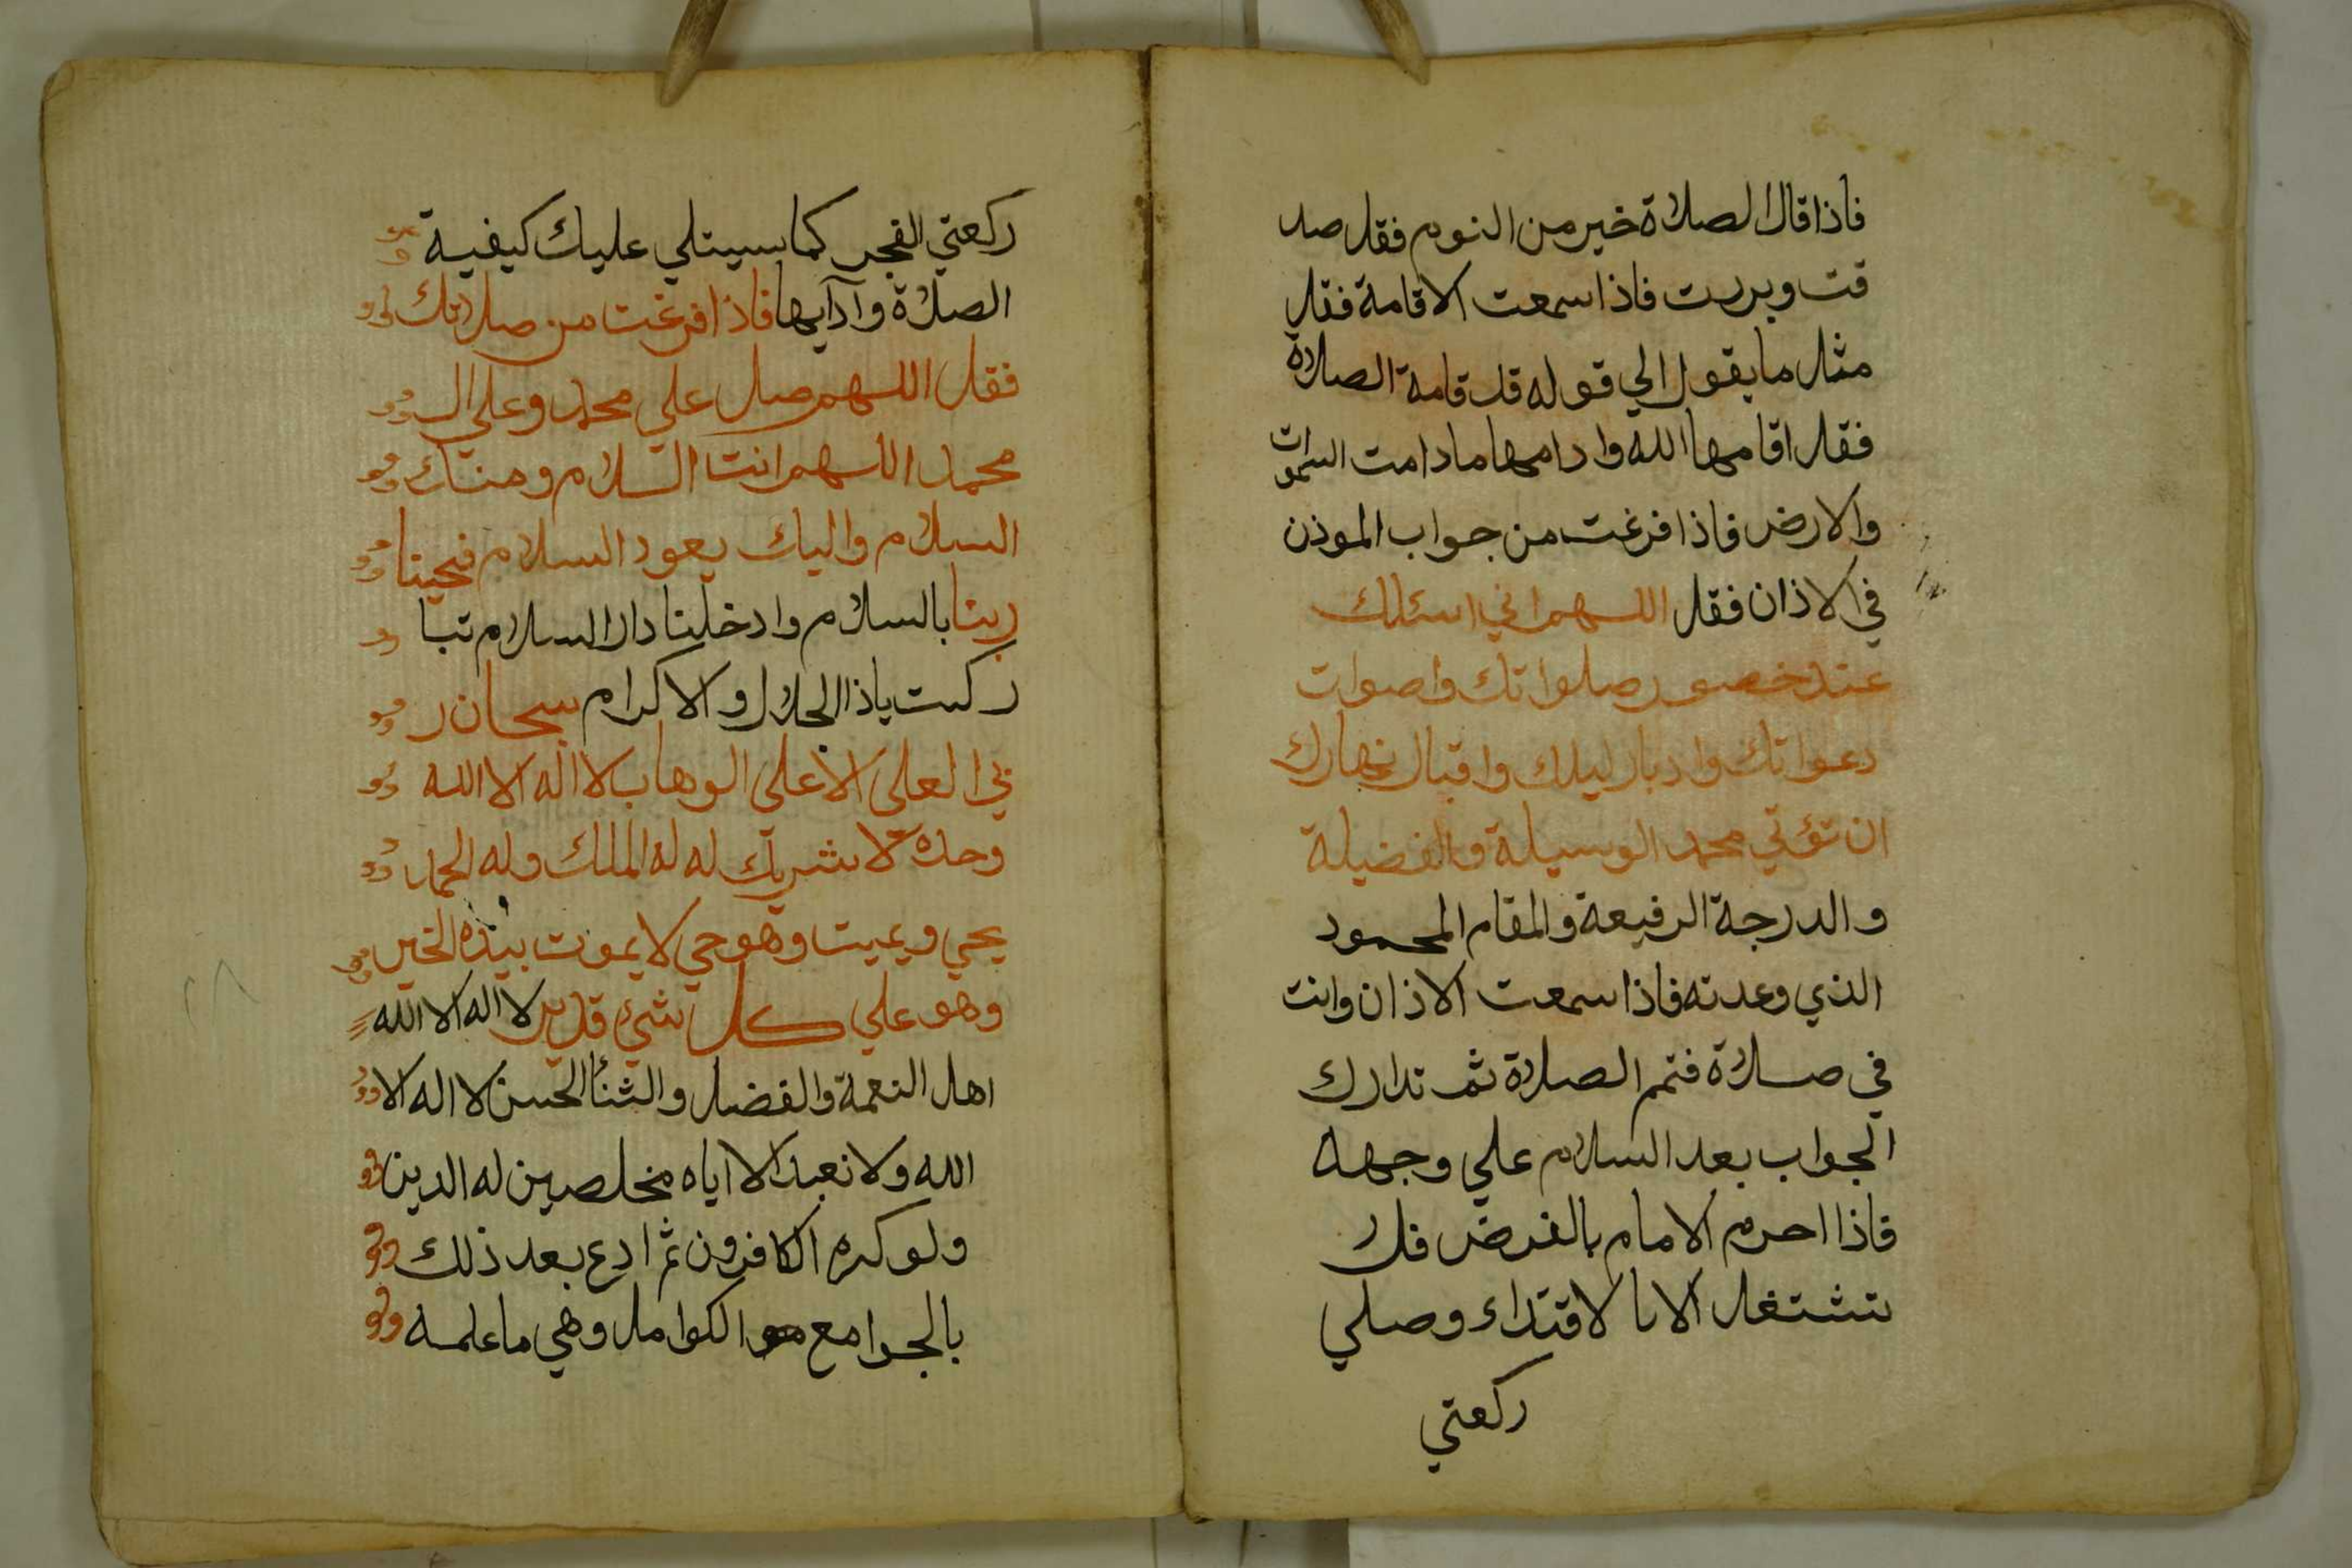 فاذا قال الصلاة خير من النوم فقل صد
قت وبررت فاذا سمعت الاقامة فقل
مثل ما يقول الي قوله قد قامة الصلاة
فقل اقامها الله وادامها مادامت السموات
والارض فاذا فرغت من جواب الموذن
في الاذان فقل اللهم اني اسئلك
عند خصور صلواتك واصوات
دعواتك وادبار ليلك واقبال نهارك
ان تؤتي محمد الوسيلة والفضيلة
والدرجة الرفيعة والمقام المحمود
الذي وعدته فاذا سمعت الاذان وانت
في صلاة فتمم الصلاة ثم تدارك
الجواب بعد السلام علي وجهه
فاذا احرم الامام بالفرض فلا
تشتغل الا با لاقتداء وصلي
ركعتي
ركعتي الفجر كما سيتلي عليك كيفية
الصلاة وآدابها فاذا فرغت من صلاتك
فقل اللهم صل علي محمد وعلي ال
محمد اللهم انت السلام ومنك
السلام واليك يعود السلام فحينا
ربنا بالسلام وادخلنا دار السلام تبا
ركت ياذا الجلال والاكرام سبحان ر
بي العلي الاعلي الوهاب لا اله الا الله
وحده لا شريك له له الملك وله الحمد
يحي ويميت وهو حي لا يموت بيده الخير
وهو علي كل شيء قدير لا اله الا الله
اهل النعمة والفضل والثنأ الحسن لا اله الا
الله ولا نعبد الا اياه مخلصين له الدين
ولو كره الكافرون ثم ادع بعد ذلك
بالجوامع الكوامل وهي ما علمه